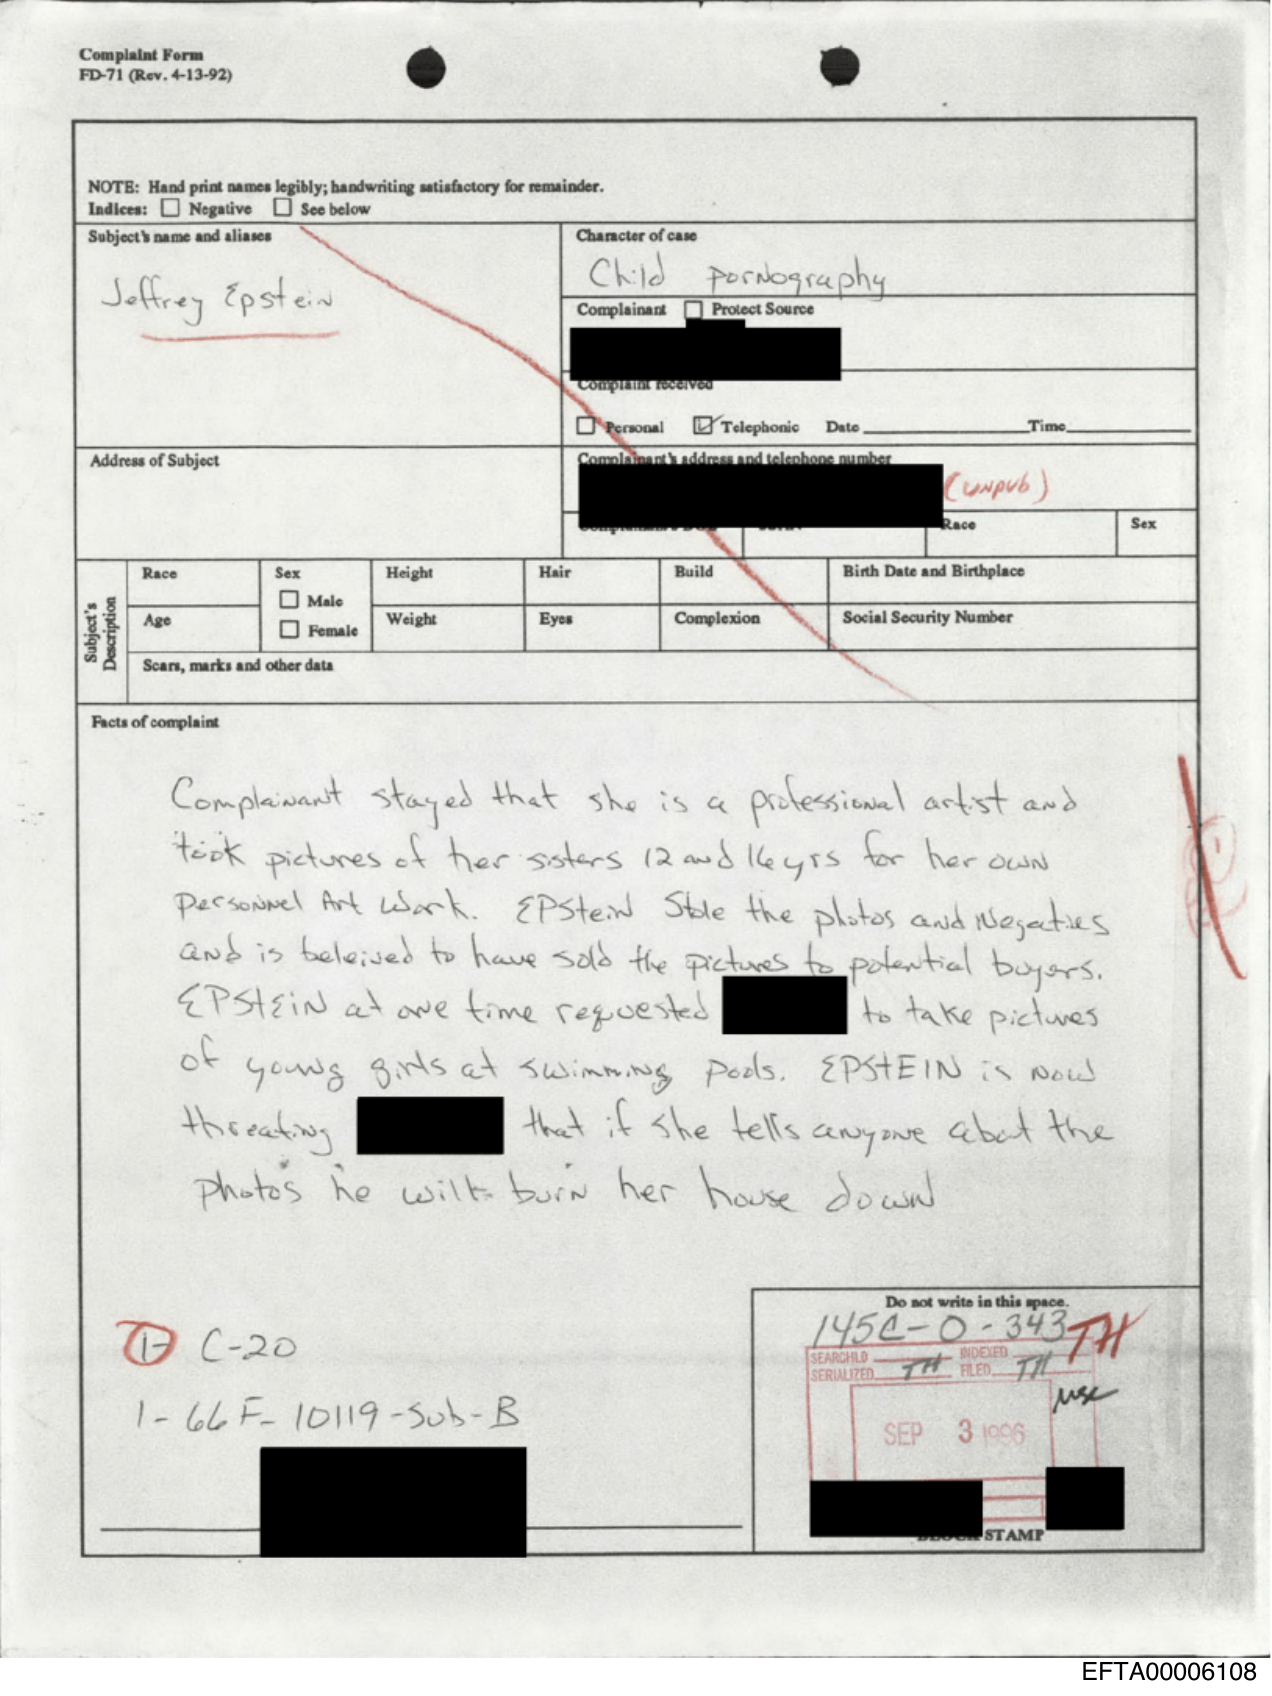 Complaint Form
FD-71 (Rev. 4-13-92)
NOTE: Hand print names legibly; handwriting satisfactory for remainder.
Indices: Negative See below
Subject's name and aliases
Jeffrey Epstein
Character of case
Child pornography
Complainant Protect Source
Complaint received
Personal Telephonic Date Time
Address of Subject
Complainant's address and telephone number
(unpub)
Race Sex
Subject's Description
Race Sex Height Hair Build Birth Date and Birthplace
Male
Age Weight Eyes Complexion Social Security Number
Female
Scars, marks and other data
Facts of complaint
Complainant stayed that she is a professional artist and
took pictures of her sisters 12 and 16 yrs for her own
personnel Art Work. EPStein Stole the photos and Negaties
and is beleived to have sold the pictures to potential buyers.
EPStein at one time requested to take pictures
of young girls at swimming pools. EPSTEIN is now
threating that if she tells anyone about the
photos he will burn her house down
1- C-20
1- 66F-10119-Sub-B
Do not write in this space.
145C-0-343 TH
SEARCHED INDEXED
SERIALIZED TH FILED TH
SEP 3 1996
BLOCK STAMP
EFTA00006108